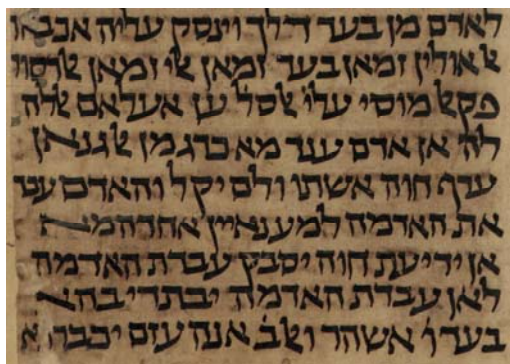 לאדם מן בעד דלך וינסק עליה אכבאר
ﭏאולין זמאן בעד זמאן ﭏי זמאן ﭏרסול
פקﭏ מוסי עליׄ ﭏסל ען אעלאם ﭏלה
לה אן אדם ענד מא כרג מן ﭏגנאן
ערף חוה אשתו ולם יקל והאדם עבד
את האדמה למענאיין אחדהמא
אן ידיעת חוה יסבק עבדת האדמה
לאן עבדת האדמה יבתדי בהא
בעד וׄ אשהר וﭏבׄ אנה עזם